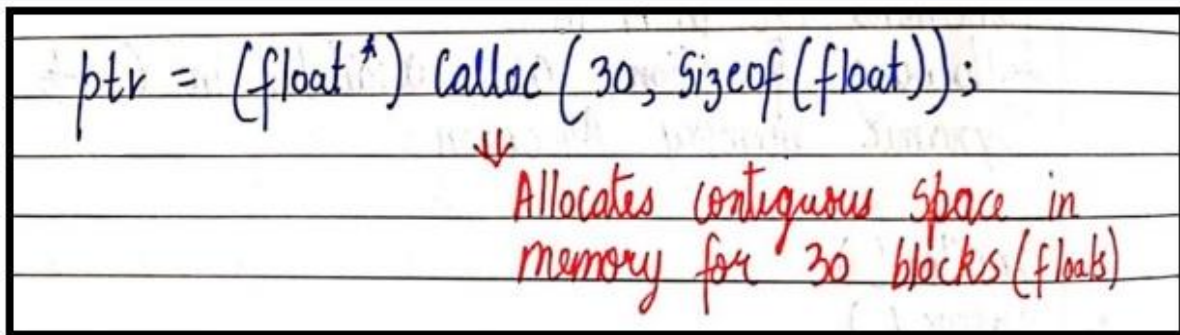 ptr = (float*) Calloc (30, Sizeof(float));
Allocates contiguous space in
memory for 30 blocks (floats)